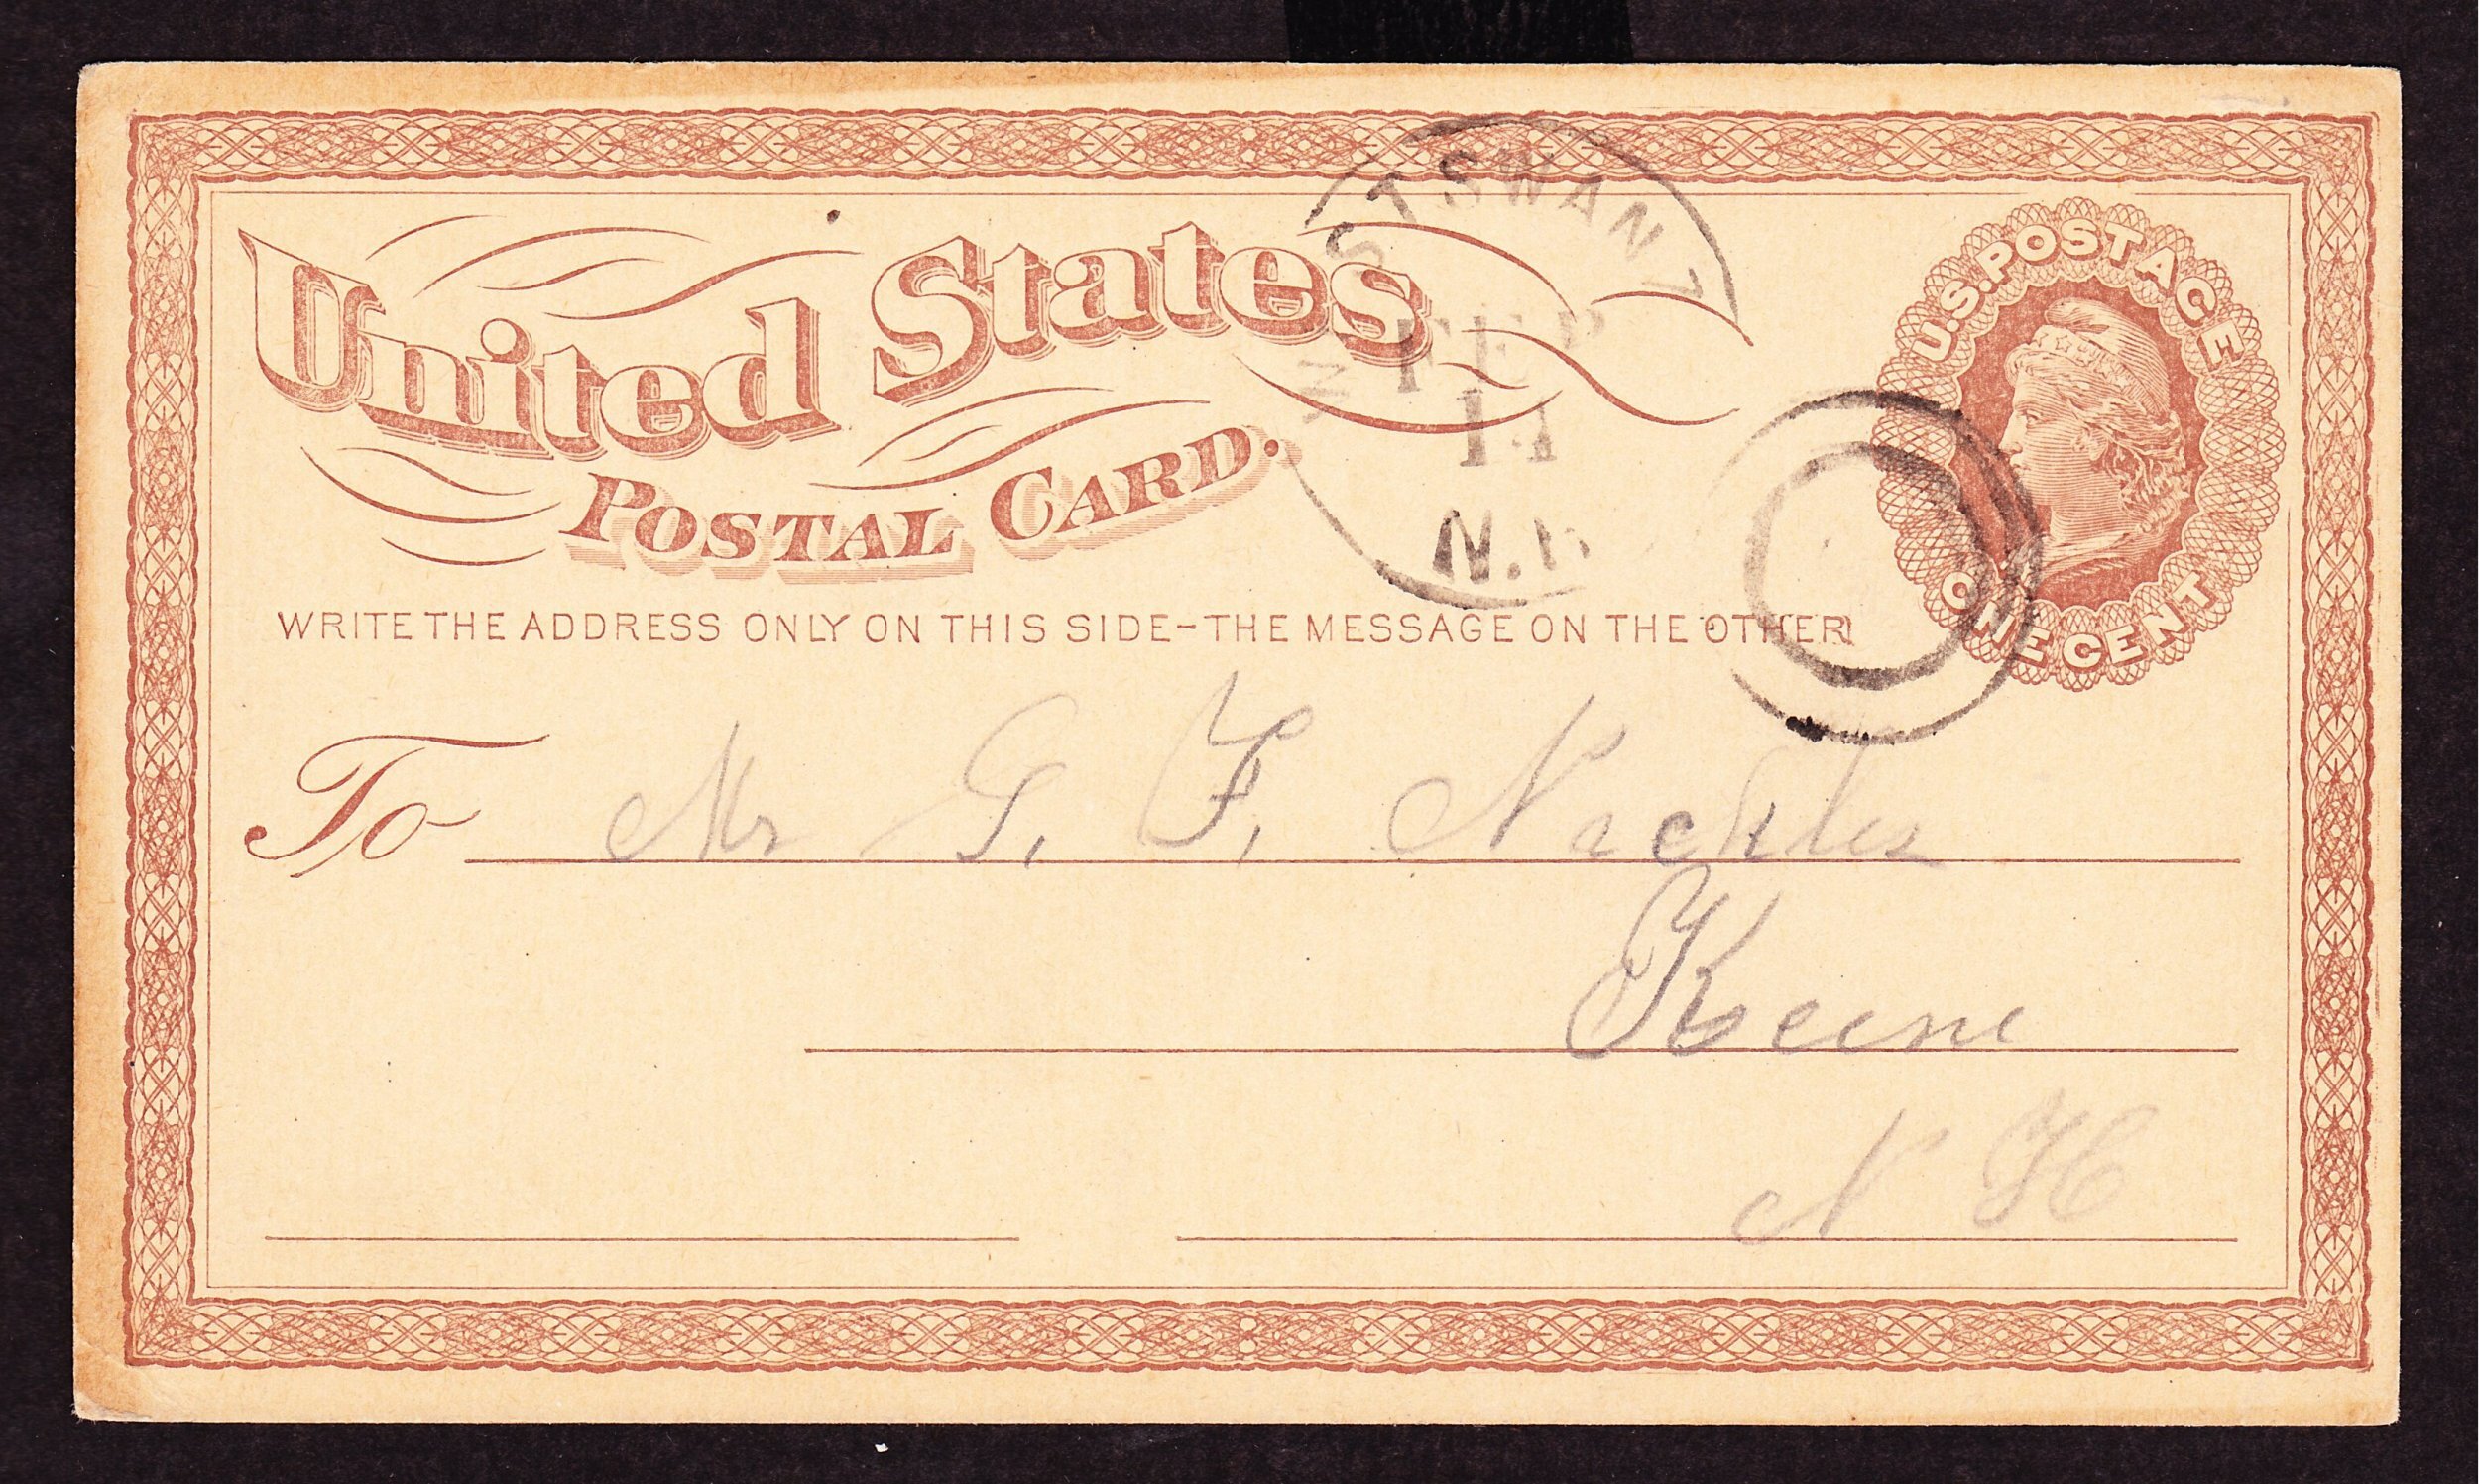 United States
POSTAL CARD.
U.S. POSTAGE
ONE CENT
W STSWANZ
FEB
14
N.H
WRITE THE ADDRESS ONLY ON THIS SIDE-THE MESSAGE ON THE OTHER
To Mr G. F. Nickles
Keene
N H